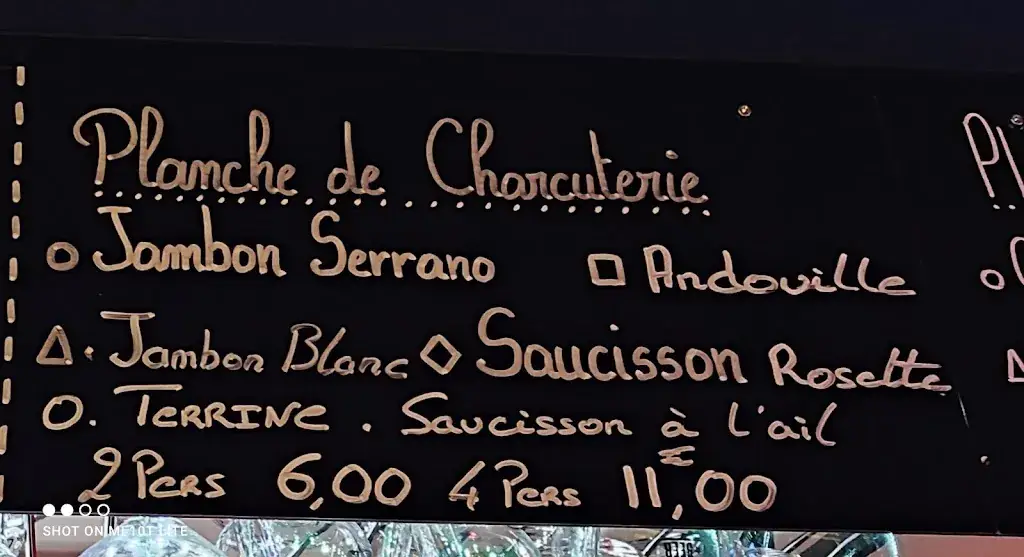 Planche de Charcuterie
Jambon Serrano Andouille
Jambon Blanc Saucisson Rosette
TERRINE . Saucisson à l'ail
2 Pers 6,00 4 Pers 11,00 €
SHOT ON MI 10T LITE